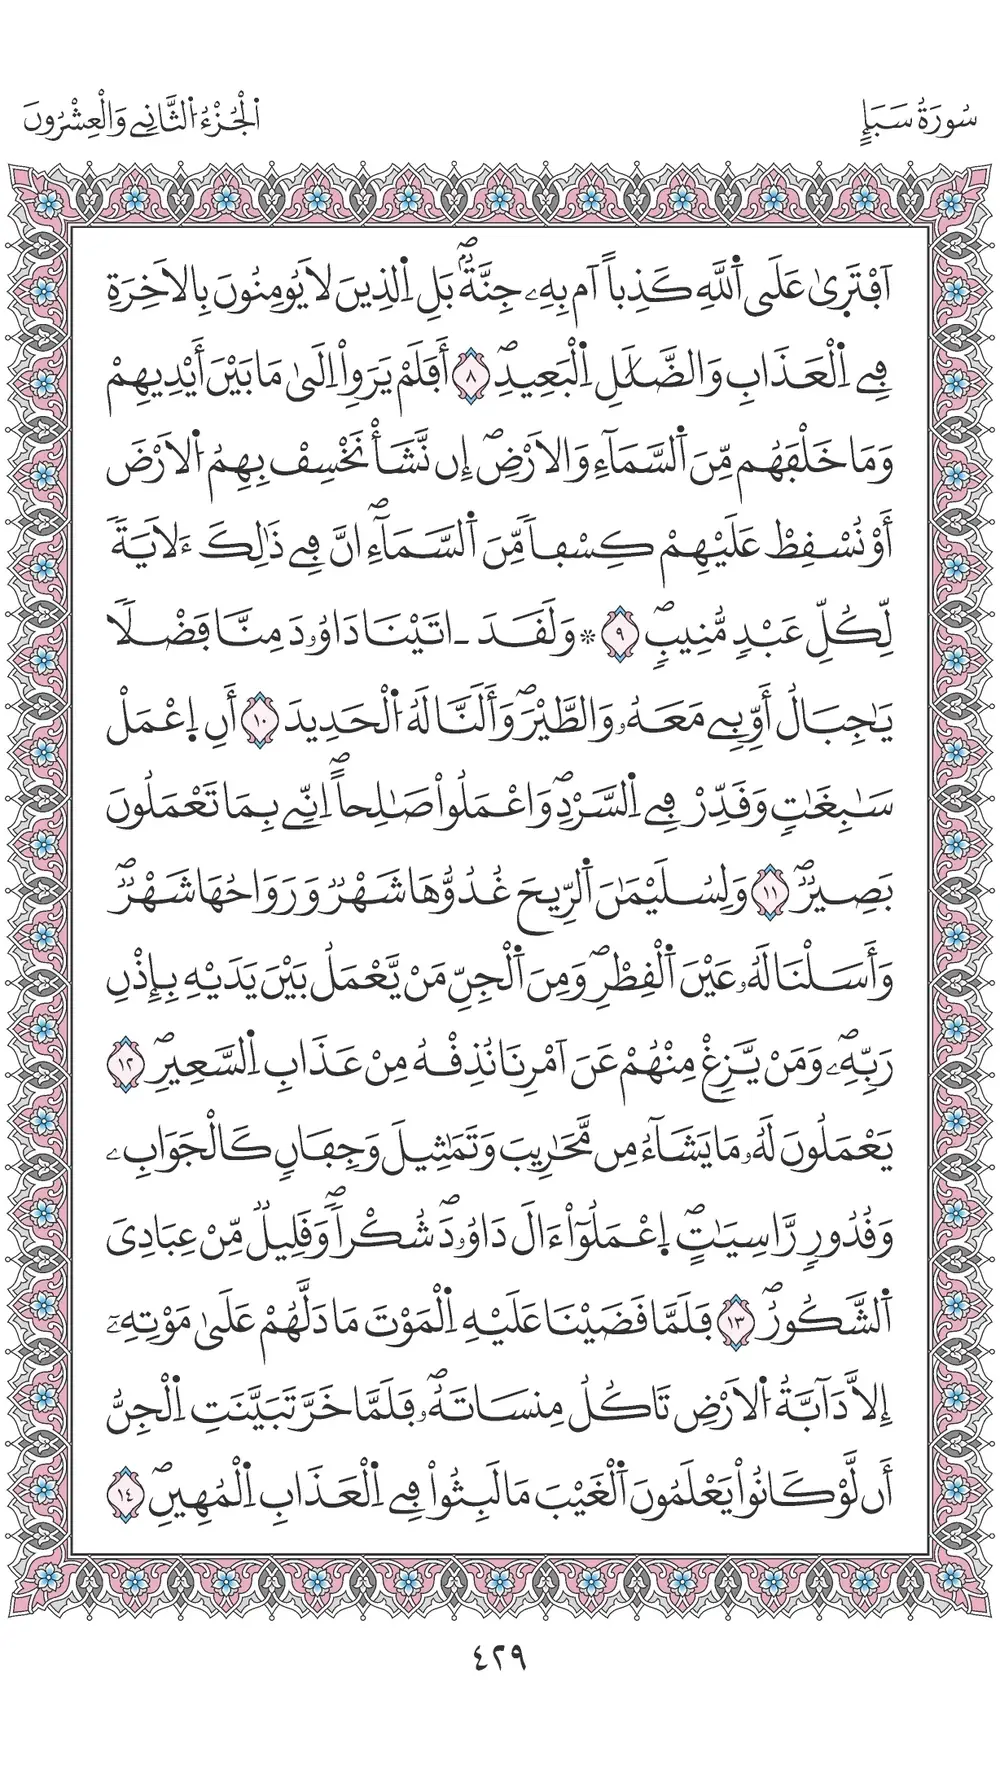 سُورَةُ سَبَإٍ
اَ۬لْجُزْءُ اُ۬لثَّانِے وَالْعِشْرُونَ
اَ۪فْتَر۪يٰ عَلَي اَ۬للَّهِ كَذِباً اَم بِهِۦ جِنَّةُۢۖ بَلِ اِ۬لذِينَ لَا يُومِنُونَ بِالَاخِرَةِ
فِے اِ۬لْعَذَابِ وَالضَّلَٰلِ اِ۬لْبَعِيدِۖ ٨ أَفَلَمْ يَرَوِاْ اِلَيٰ مَا بَيْنَ أَيْدِيهِمْ
وَمَا خَلْفَهُم مِّنَ اَ۬لسَّمَآءِ وَالَارْضِۖ إِن نَّشَأْ نَخْسِفْ بِهِمُ اُ۬لَارْضَ
أَوْ نُسْقِطْ عَلَيْهِمْ كِسْفاٗ مِّنَ اَ۬لسَّمَآءِۖ اِنَّ فِے ذَٰلِكَ ءَلَايَةٗ
لِّكُلِّ عَبْدٖ مُّنِيبٖۖ ٩ ۞ وَلَقَدَ اٰتَيْنَا دَاوُۥدَ مِنَّا فَضْلاٗ
يَٰجِبَالُ أَوِّبِے مَعَهُۥ وَالطَّيْرَۖ وَأَلَنَّا لَهُ اُ۬لْحَدِيدَ ١٠ أَنِ اِ۪عْمَلْ
سَٰبِغَٰتٖ وَقَدِّرْ فِے اِ۬لسَّرْدِۖ وَاعْمَلُواْ صَٰلِحاًۖ اِنِّے بِمَا تَعْمَلُونَ
بَصِيرٞۖ ١١ وَلِسُلَيْمَٰنَ اَ۬لرِّيحَ غُدُوُّهَا شَهْرٞ وَرَوَاحُهَا شَهْرٞۖ
وَأَسَلْنَا لَهُۥ عَيْنَ اَ۬لْقِطْرِۖ وَمِنَ اَ۬لْجِنِّ مَنْ يَّعْمَلُ بَيْنَ يَدَيْهِ بِإِذْنِ
رَبِّهِۦۖ وَمَنْ يَّزِغْ مِنْهُمْ عَنَ اَمْرِنَا نُذِقْهُ مِنْ عَذَابِ اِ۬لسَّعِيرِۖ ١٢
يَعْمَلُونَ لَهُۥ مَا يَشَآءُ مِن مَّحَٰرِيبَ وَتَمَٰثِيلَ وَجِفَانٖ كَالْجَوَابِۦ
وَقُدُورٖ رَّاسِيَٰتٍۖ اِ۪عْمَلُوٓاْ ءَالَ دَاوُۥدَۖ شُكْراٗۖ وَقَلِيلٞ مِّنْ عِبَادِيَ
اَ۬لشَّكُورُۖ ١٣ فَلَمَّا قَضَيْنَا عَلَيْهِ اِ۬لْمَوْتَ مَا دَلَّهُمْ عَلَيٰ مَوْتِهِۦٓ
إِلَّا دَآبَّةُ اُ۬لَارْضِ تَاكُلُ مِنسَاتَهُۥۖ فَلَمَّا خَرَّ تَبَيَّنَتِ اِ۬لْجِنُّ
أَن لَّوْ كَانُواْ يَعْلَمُونَ اَ۬لْغَيْبَ مَا لَبِثُواْ فِے اِ۬لْعَذَابِ اِ۬لْمُهِينِۖ ١٤
٤٢٩